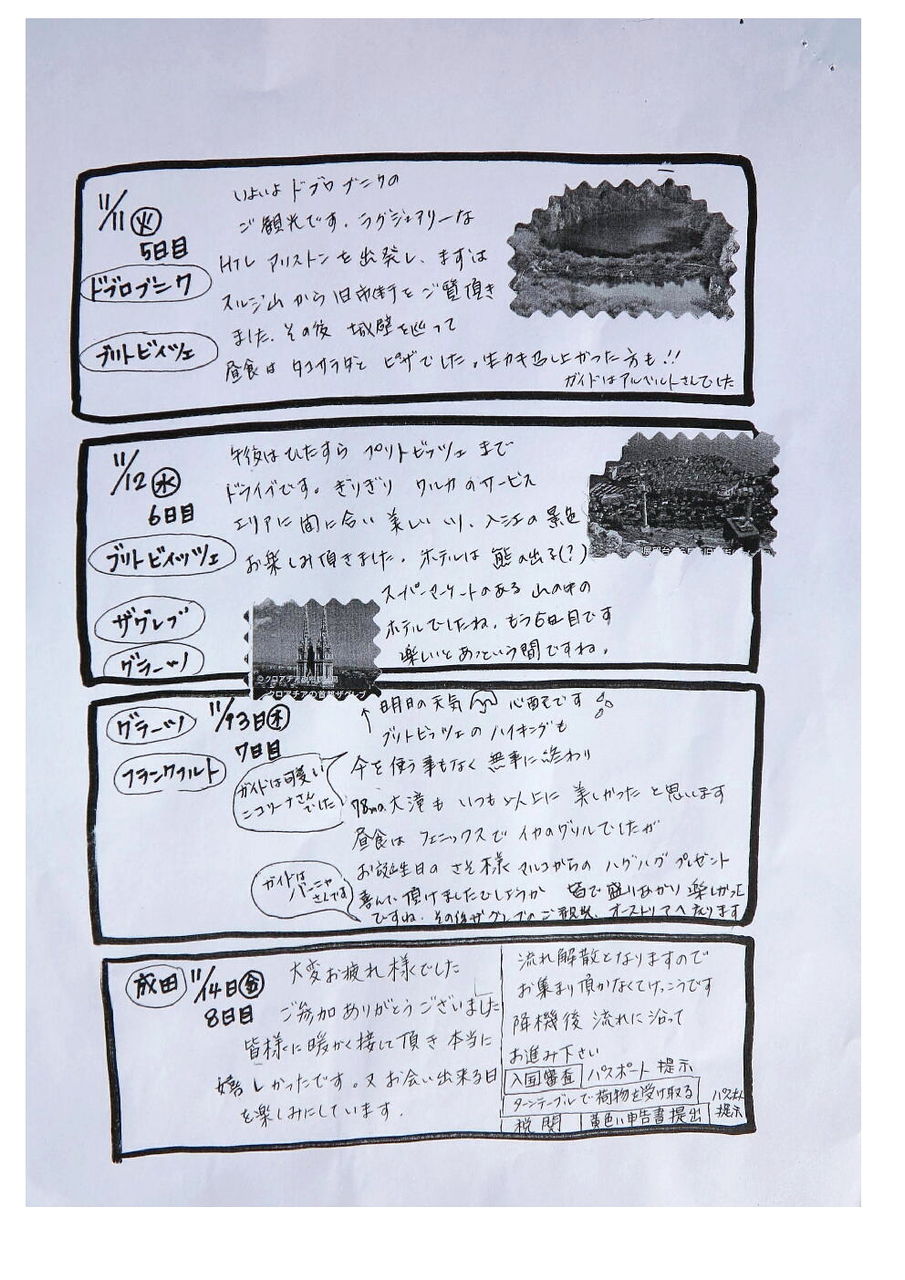 11/11 火
5日目
ドブロブニク
プリトビィツェ
いよいよ ドブロブニクの
ご観光です. ラグジュアリーな
HTL アリストンを出発し、まずは
スルジ山から旧市街をご覧頂き
ました. その後 城壁を巡って
昼食は タコサラダと ピザでした。生カキ召し上がった方も!!
ガイドはアルベルトさんでした
11/12 水
6日目
プリトビィッツェ
ザグレブ
グラーツ
午後はひたすら プリトビッツェ まで
ドライブです。ぎりぎり のサービス
エリアに間に合い 美しい 入江の景色
お楽しみ頂きました. ホテルは 熊の出る(?)
スーパーマーケットのある 山の中の
ホテルでしたね. もう6日目です
楽しいとあっという間ですね.
↑明日の天気 心配です
グラーツ
フランクフルト
11/13日 木
7日目
プリトビッツェの ハイキングも
傘を使う事もなく 無事に終わり
78mの大滝も いつも以上に 美しかったと思います
昼食は フェニックスで イカのグリルでしたが
お誕生日の 様 マルコからの ハグハグ プレゼント
喜んで頂けましたでしょうか 皆で盛りあがり 楽しかった
ですね. その後ザグレブのご観光、オーストリアへ 戻ります
ガイドは可愛い
ニコリーナさん
でした
ガイドは
バーニャ
さんです
成田 11/14日 金
8日目
大変お疲れ様でした
ご参加ありがとうございました
皆様に暖かく接して頂き 本当に
嬉しかったです。又お会い出来る日
を楽しみにしています.
流れ解散となりますので
お集まり頂かなくてけっこうです
降機後 流れに沿って
お進み下さい
入国審査 パスポート 提示
ターンテーブルで荷物を受け取る
税関 黄色い申告書提出 パスポート
提示